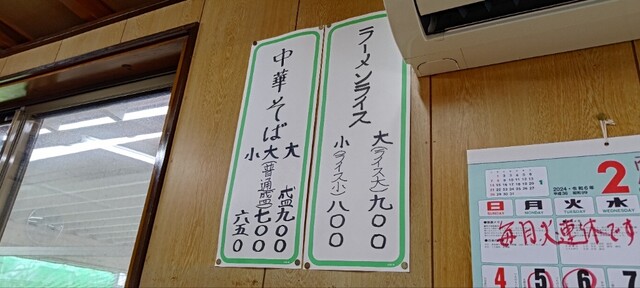 ラーメンライス
大(ライス大)九〇〇
小(ライス小)八〇〇
中華そば
大 盛九〇〇
大(普通盛)七〇〇
小 六五〇
2024・令和6年
2
日 月 火 水
SUNDAY MONDAY TUESDAY WEDNESDAY
毎月火連休です
4 5 6 7